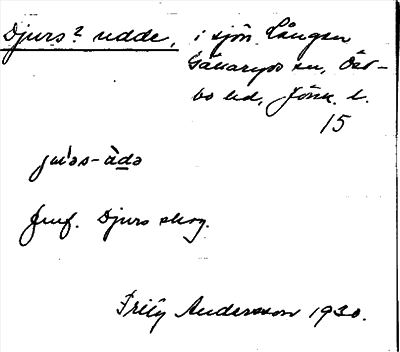 Djurs? udde, i sjön Lången
Gällaryds sn, Öst-
bo hd, Jönk. l.
15
Jmf. Djurs skog.
Frily Andersson 1930.